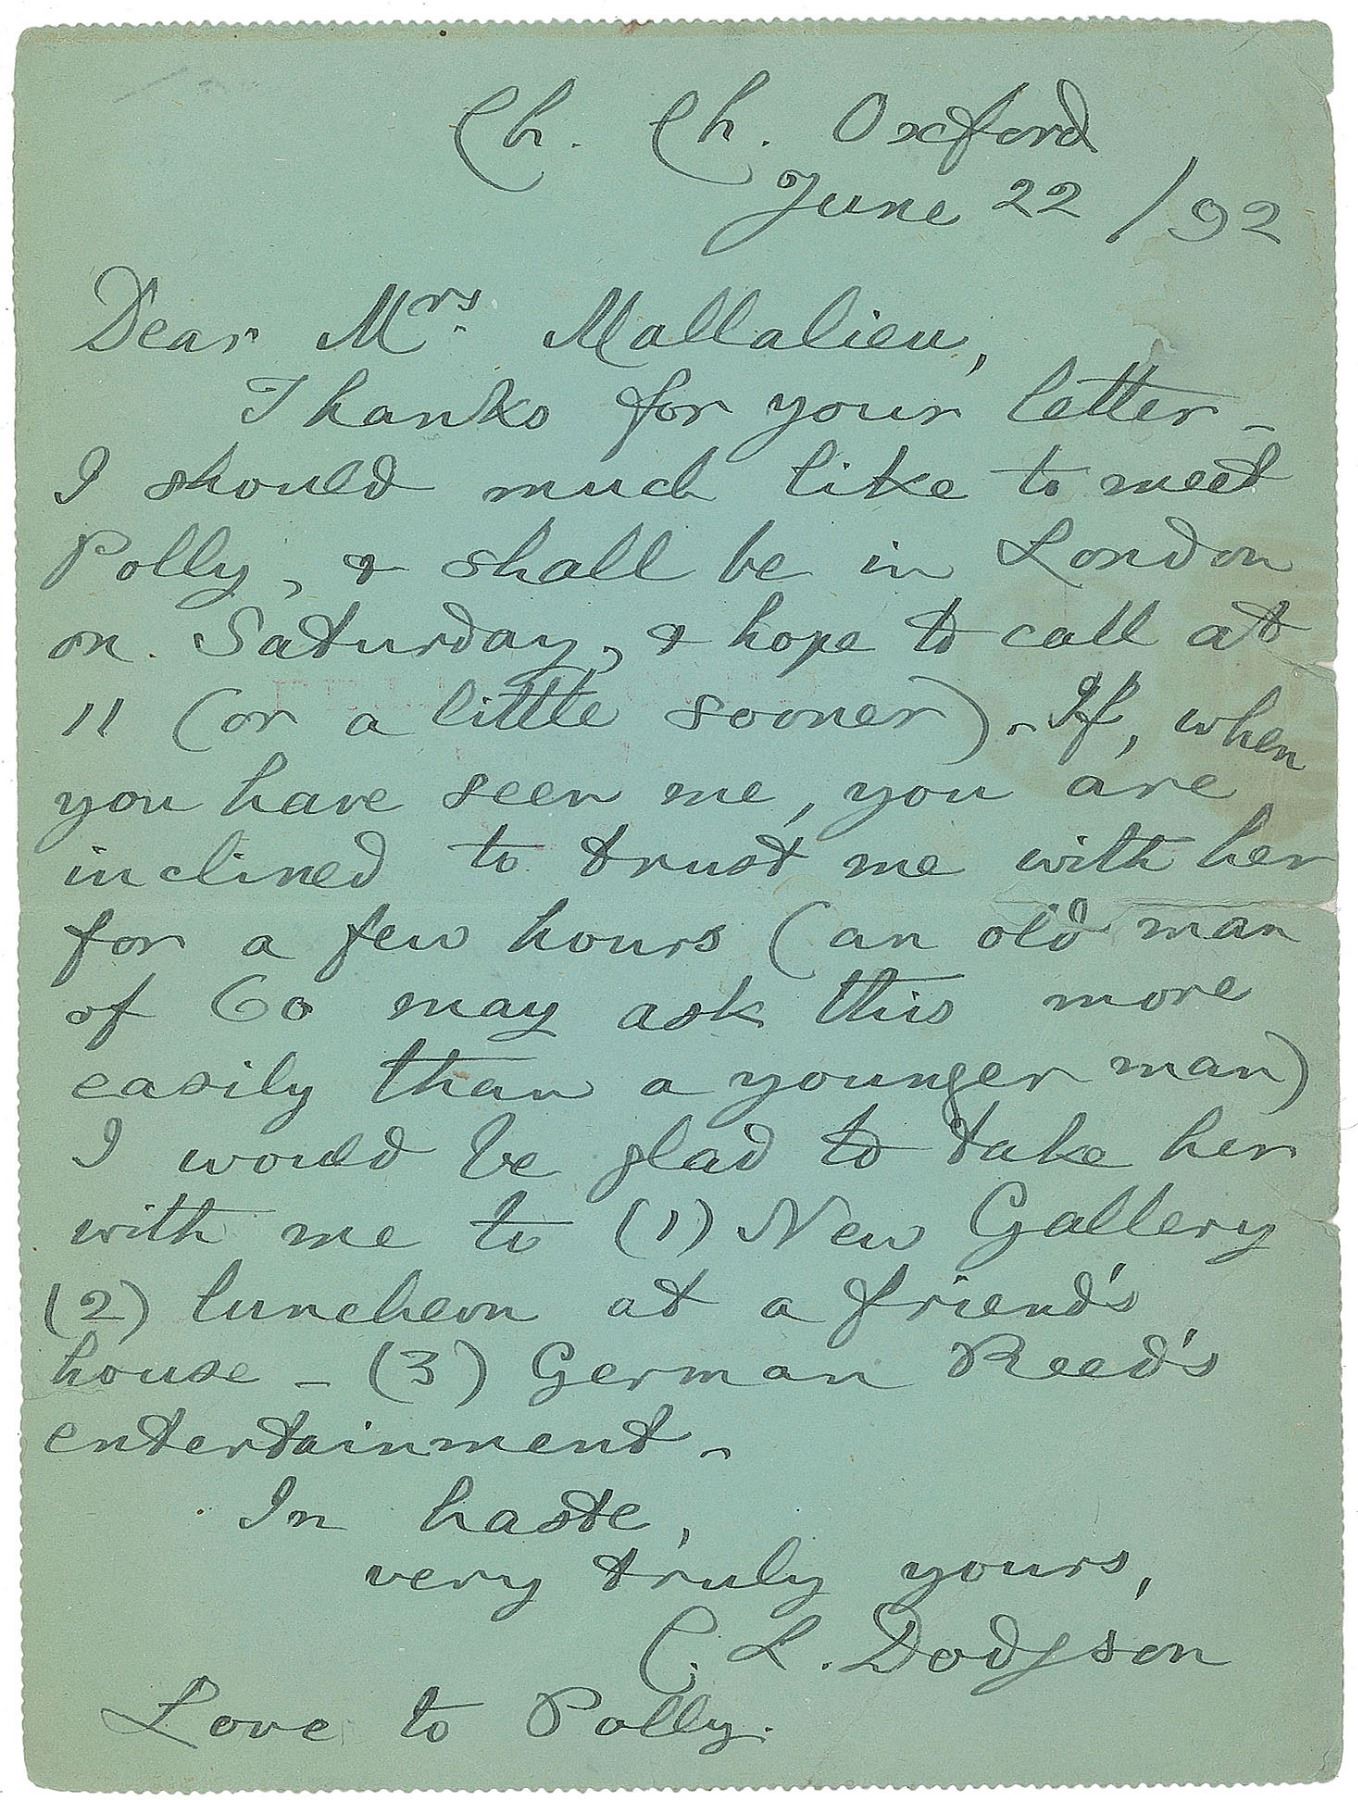 Ch. Ch. Oxford
June 22/92
Dear Mrs. Mallalieu,
Thanks for your letter –
I should much like to meet
Polly, & shall be in London
on Saturday, & hope to call at
11 (or a little sooner). If, when
you have seen me, you are
inclined to trust me with her
for a few hours (an old man
of 60 may ask this more
easily than a younger man)
I would be glad to take her
with me to (1) New Gallery
(2) luncheon at a friend's
house – (3) German Reed's
entertainment –
In haste,
very truly yours,
C. L. Dodgson
Love to Polly.